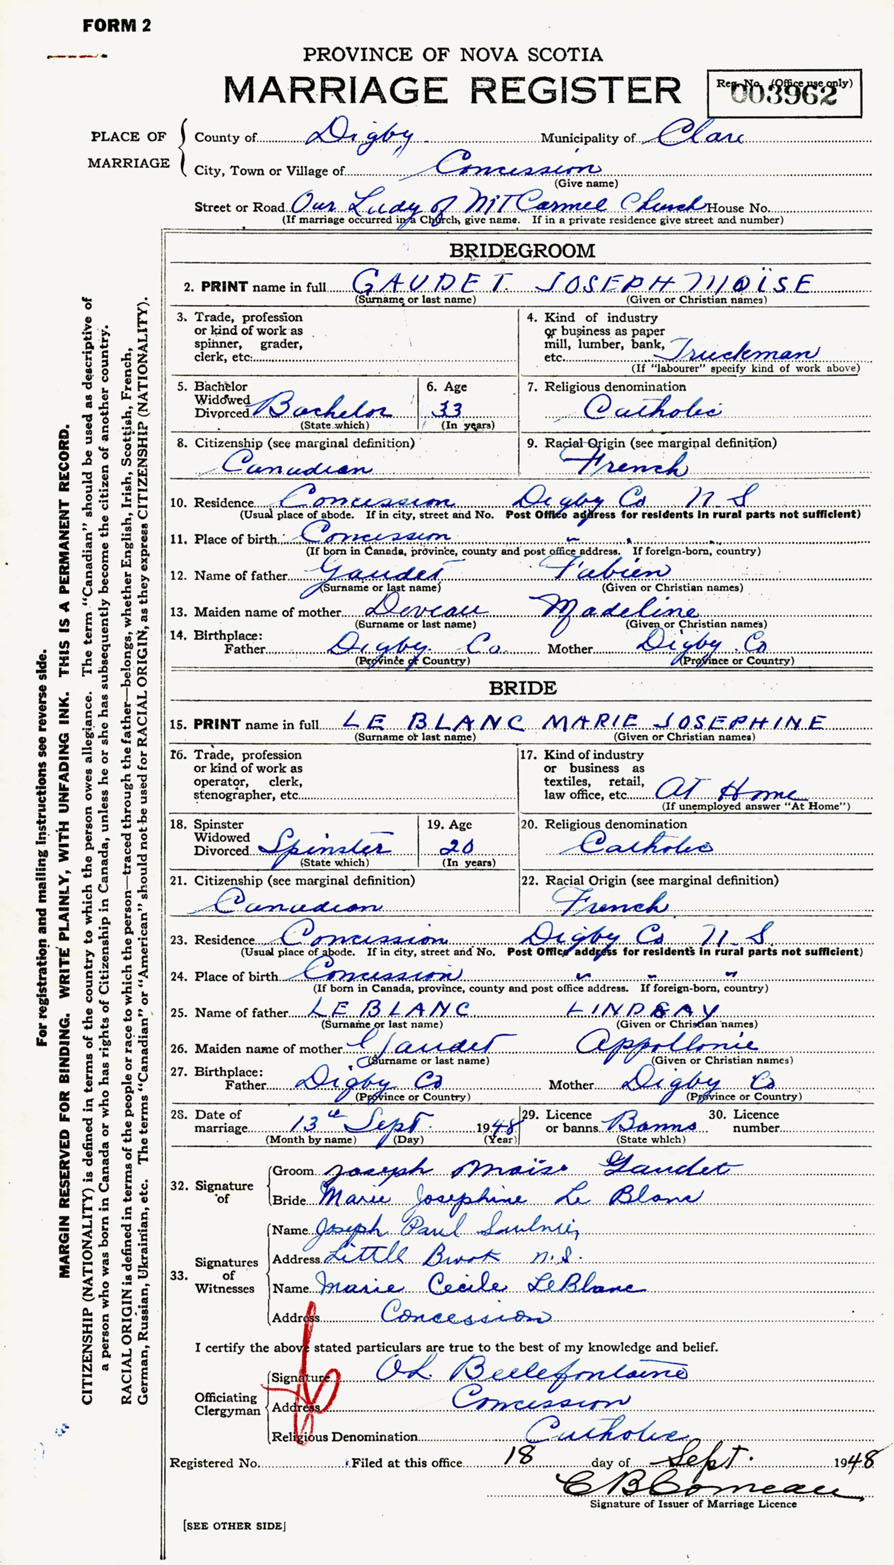 FORM 2
PROVINCE OF NOVA SCOTIA
MARRIAGE REGISTER
Reg. No. (Office use only)
003962
PLACE OF MARRIAGE
County of Digby Municipality of Clare
City, Town or Village of Concession
(Give name)
Street or Road Our Lady of Mt Carmel Church House No.
(If marriage occurred in a Church, give name. If in a private residence give street and number)
BRIDEGROOM
2. PRINT name in full GAUDET JOSEPH MOÏSE
(Surname or last name) (Given or Christian names)
3. Trade, profession
or kind of work as
spinner, grader,
clerk, etc.
4. Kind of industry
or business as paper
mill, lumber, bank,
etc. Truckman
(If "labourer" specify kind of work above)
5. Bachelor
Widowed
Divorced Bachelor
(State which)
6. Age
33
(In years)
7. Religious denomination
Catholic
8. Citizenship (see marginal definition)
Canadian
9. Racial Origin (see marginal definition)
French
10. Residence Concession Digby Co N S
(Usual place of abode. If in city, street and No. Post Office address for residents in rural parts not sufficient)
11. Place of birth Concession " " "
(If born in Canada, province, county and post office address. If foreign-born, country)
12. Name of father Gaudet Fabien
(Surname or last name) (Given or Christian names)
13. Maiden name of mother Deveau Madeline
(Surname or last name) (Given or Christian names)
14. Birthplace:
Father Digby Co. Mother Digby Co
(Province or Country) (Province or Country)
BRIDE
15. PRINT name in full LE BLANC MARIE JOSEPHINE
(Surname or last name) (Given or Christian names)
16. Trade, profession
or kind of work as
operator, clerk,
stenographer, etc.
17. Kind of industry
or business as
textiles, retail,
law office, etc. At Home
(If unemployed answer "At Home")
18. Spinster
Widowed
Divorced Spinster
(State which)
19. Age
20
(In years)
20. Religious denomination
Catholic
21. Citizenship (see marginal definition)
Canadian
22. Racial Origin (see marginal definition)
French
23. Residence Concession Digby Co N. S.
(Usual place of abode. If in city, street and No. Post Office address for residents in rural parts not sufficient)
24. Place of birth Concession " " "
(If born in Canada, province, county and post office address. If foreign-born, country)
25. Name of father LEBLANC LINDSAY
(Surname or last name) (Given or Christian names)
26. Maiden name of mother Gaudet Appollonie
(Surname or last name) (Given or Christian names)
27. Birthplace:
Father Digby Co Mother Digby Co
(Province or Country) (Province or Country)
28. Date of
marriage 13th Sept. 1948
(Month by name) (Day) (Year)
29. Licence
or banns Banns
(State which)
30. Licence
number
32. Signature of
Groom Joseph Moïse Gaudet
Bride Marie Josephine Le Blanc
33. Signatures of Witnesses
Name Joseph Paul Saulnier
Address Little Brook N.S.
Name Marie Cecile LeBlanc
Address Concession
I certify the above stated particulars are true to the best of my knowledge and belief.
Officiating Clergyman
Signature Belliefontaine
Address Concession
Religious Denomination Catholic
Registered No. Filed at this office 18 day of Sept. 1948
C B Comeau
Signature of Issuer of Marriage Licence
[SEE OTHER SIDE]
For registration and mailing instructions see reverse side.
MARGIN RESERVED FOR BINDING. WRITE PLAINLY, WITH UNFADING INK. THIS IS A PERMANENT RECORD.
CITIZENSHIP (NATIONALITY) is defined in terms of the country to which the person owes allegiance. The term "Canadian" should be used as descriptive of
a person who was born in Canada or who has rights of Citizenship in Canada, unless he or she has subsequently become the citizen of another country.
RACIAL ORIGIN is defined in terms of the people or race to which the person—traced through the father—belongs, whether English, Irish, Scottish, French,
German, Russian, Ukrainian, etc. The terms "Canadian" or "American" should not be used for RACIAL ORIGIN, as they express CITIZENSHIP (NATIONALITY).